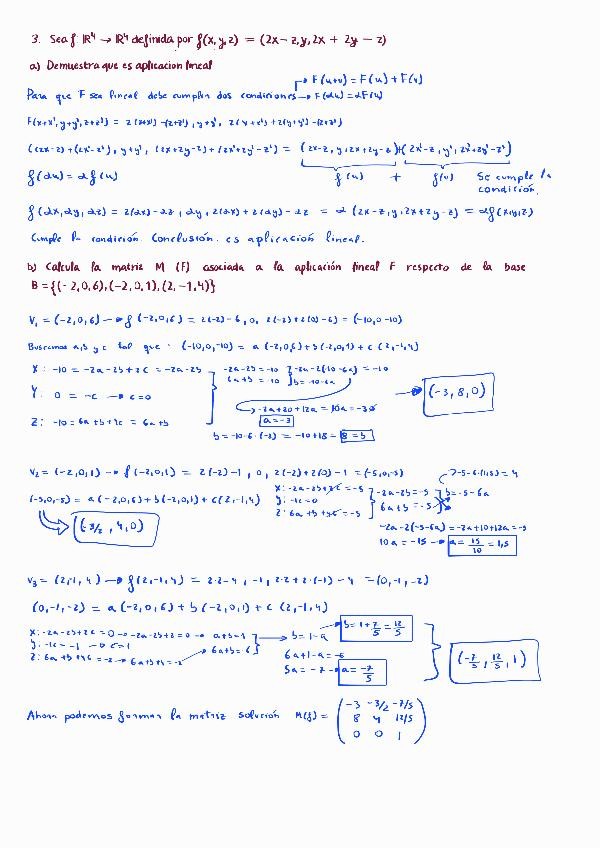 3. Sea f: ℝ⁴ → ℝ⁴ definida por f(x,y,z) = (2x-z,y,2x + 2y - z)
a) Demuestra que es aplicacion lineal
→ F(u+v) = F(u) + F(v)
Para que F sea lineal debe cumplir dos condiciones → F(αu) = αF(u)
F(x+x', y+y', z+z') = 2(x+x') - (z+z'), y+y', 2(x+x') + 2(y+y') - (z+z')
((2x-z) + (2x'-z'), y+y', (2x+2y-z) + (2x'+2y'-z') = (2x-z, y, 2x+2y-z) + (2x'-z, y', 2x'+2y'-z')
f(αu) = αf(u) f(u) + f(v) Se cumple la
condición.
f(αx, αy, αz) = 2(αx) - αz, αy, 2(αx) + 2(αy) - αz = α(2x-z, y, 2x+2y-z) = αf(x,y,z)
Cumple la condición. Conclusión. es aplicación lineal.
b) Calcula la matriz M (F) asociada a la aplicación lineal F respecto de la base
B = {(-2,0,6), (-2,0,1), (2,-1,4)}
V₁ = (-2,0,6) → f(-2,0,6) = 2(-2)-6, 0, 2(-2)+2(0)-6) = (-10,0-10)
Buscamos a,b y c tal que: (-10,0,-10) = a(-2,0,6) + b(-2,0,1) + c(2,-1,4)
X: -10 = -2a-2b+2c = -2a-2b -2a-2b = -10 -2a-2(-10-6a) = -10
6a+b = -10 b = -10-6a
Y: 0 = -c → c=0 → (-3, 8, 0)
-2a+20+12a = 10a = -30
Z: -10 = 6a+b+4c = 6a+b a = -3
b = -10-6·(-3) = -10+18 = 8 = b
V₂ = (-2,0,1) → f(-2,0,1) = 2(-2)-1, 0, 2(-2)+2(0)-1 = (-5,0,-5) -5-6(-1,5) = 4
(-5,0,-5) = a(-2,0,6) + b(-2,0,1) + c(2,-1,4) X: -2a-2b+2c = -5 -2a-2b = -5 b = -5-6a
Y: -1c = 0 6a+b = -5
Z: 6a+b+4c = -5
(-3/2, 4, 0) -2a-2(-5-6a) = -2a+10+12a = -5
10a = -15 → a = 15/10 = 1,5
V₃ = (2,-1,4) → f(2,-1,4) = 2·2-4, -1, 2·2+2·(-1)-4 = (0,-1,-2)
(0,-1,-2) = a(-2,0,6) + b(-2,0,1) + c(2,-1,4)
X: -2a-2b+2c = 0 → -2a-2b+2=0 → a+b=1 → b = 1-a b = 1+7/5 = 12/5
Y: -1c = -1 → c=1 6a+b = -6 6a+1-a = -6 (-7/5, 12/5, 1)
Z: 6a+b+4c = -2 → 6a+b+4 = -2 5a = -7 → a = -7/5
Ahora podemos formar la matriz solución M(f) = (-3 -3/2 -7/5
8 4 12/5
0 0 1)